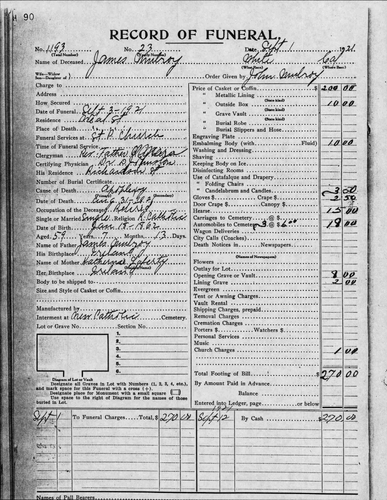 90
RECORD OF FUNERAL.
No. 1193 No. 23 Date Sept 1 1921
Name of Deceased James White Col
Order Given by John
Charge to
Address
How Secured
Date of Funeral Sept 3-1921
Residence
Place of Death
Funeral Services at St. P. Church
Time of Funeral Service
Clergyman Rev. Father
Certifying Physician Dr. B. Johnson
His Residence
Number of Burial Certificate
Cause of Death
Date of Death Aug 31-1921
Occupation of the Deceased
Single or Married Single Religion R. Catholic
Date of Birth Jan 18-1862
Aged 59 Years 7 Months 13 Days
Name of Father James
His Birthplace Ireland
Name of Mother
Her Birthplace Ireland
Body to be shipped to
Size and Style of Casket or Coffin
Manufactured by
Interment at New Catholic Cemetery.
Lot or Grave No. Section No.
Diagram of Lot or Vault
Designate all Graves in Lot with Numbers (1, 2, 3, 4, etc.),
and mark space for this Funeral with a cross (+).
Designate place for Monument with a small square
Use space to the right of Diagram for the names of those
buried in Lot.
Price of Casket or Coffin 200 00
" Metallic Lining
" Outside Box 10 00
" Grave Vault
" Burial Robe
" Burial Slippers and Hose
Engraving Plate
Embalming Body (with Fluid) 10 00
Washing and Dressing
Shaving
Keeping Body on Ice
Disinfecting Rooms
Use of Catafalque and Drapery
" Folding Chairs
" Candelabrum and Candles
Gloves
Door Crape
Hearse 15 00
Carriages to Cemetery
Automobiles to Cemetery 3 @ $6.00 18 00
Wagon Deliveries
City Calls (Coaches)
Death Notices in Newspapers
(Names of Newspapers)
Flowers
Outlay for Lot
Opening Grave or Vault 8 00
Lining Grave 2 00
Evergreen
Tent or Awning Charges
Vault Rental
Shipping Charges, prepaid
Removal Charges
Cremation Charges
Porters Watchers
Personal Services
Music
Church Charges 1 00
Total Footing of Bill 270 00
By Amount Paid in Advance
Balance
Entered into Ledger, page or below
Sept 1 To Funeral Charges Total, $ 270 00 Sept 12 By Cash $ 270 00
Names of Pall Bearers